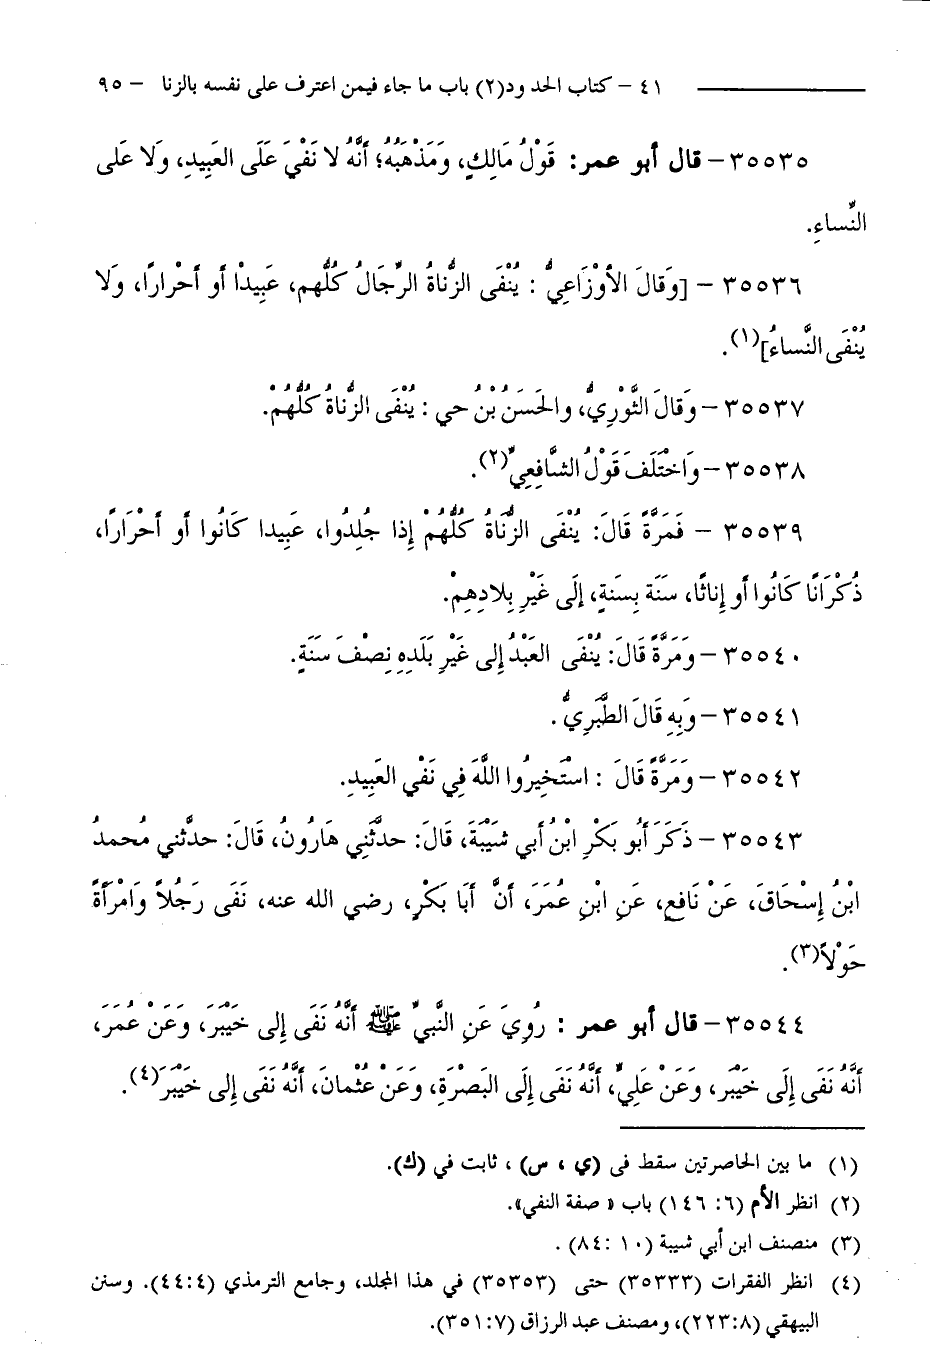 ٤١ – كتاب الحدود(٢) باب ما جاء فيمن اعترف على نفسه بالزنا – ٩٥
٣٥٥٣٥ – قال أبو عمر: قَوْلُ مَالِكٍ، وَمَذْهَبُهُ؛ أَنَّهُ لا نَفْيَ عَلَى العَبِيدِ، وَلا عَلى
النِّساءِ.
٣٥٥٣٦ – [وَقالَ الأوْزَاعِيُّ : يُنْفَى الزُّناةُ الرِّجَالُ كُلُّهم، عَبِيدًا أو أحْرارًا، وَلا
يُنْفَى النِّساءُ](١).
٣٥٥٣٧ – وَقالَ الثَّوْرِيُّ، والحَسَنُ بْنُ حي : يُنْفَى الزُّناةُ كُلُّهُمْ.
٣٥٥٣٨ – وَاخْتَلَفَ قَوْلُ الشَّافِعِيِّ(٢).
٣٥٥٣٩ – فَمَرَّةً قَالَ: يُنْفَى الزُّنَاةُ كُلُّهُمْ إذا جُلِدُوا، عَبِيدا كَانُوا أو أحْرَارًا،
ذُكْرَانًا كَانُوا أو إِنَاثًا، سَنَة بِسَنَةٍ، إلَى غَيْرِ بِلادِهِمْ.
٣٥٥٤٠ – وَمَرَّةً قَالَ: يُنْفَى العَبْدُ إلى غَيْرِ بَلَدِهِ نِصْفَ سَنَةٍ.
٣٥٥٤١ – وَبِهِ قَالَ الطَّبَرِيُّ .
٣٥٥٤٢ – وَمَرَّةً قَالَ : اسْتَخِيرُوا اللَّهَ فِي نَفْي العَبِيدِ.
٣٥٥٤٣ – ذَكَرَ أبُو بَكْرِ ابْنُ أبي شَيبَةَ، قَالَ: حدَّثَنِي هَارُونُ، قَالَ: حدَّثني مُحمدُ
ابْنُ إسْحَاقَ، عَنْ نَافعٍ، عَنِ ابْنِ عُمَرَ، أنَّ أبَا بَكْرٍ، رضي الله عنه، نَفَى رَجُلاً وَامْرَأةً
حَوْلاً(٣).
٣٥٥٤٤ – قال أبو عمر : رُوِيَ عَنِ النَّبيِّ ﷺ أنَّهُ نَفَى إلى خَيْبَرَ، وَعَنْ عُمَرَ،
أنَّهُ نَفَى إلَى خَيْبَر، وَعَنْ عَلِيٍّ، أنَّهُ نَفَى إلَى البَصْرَةِ، وَعَنْ عثْمانَ، أنَّهُ نَفَى إلى خَيْبَرَ(٤).
(١) ما بين الحاصرتين سقط فى (ي ، س) ، ثابت في (ك).
(٢) انظر الأم (٦: ١٤٦) باب « صفة النفي».
(٣) منصنف ابن أبي شيبة (١٠ :٨٤) .
(٤) انظر الفقرات (٣٥٣٣٣) حتى (٣٥٣٥٣) في هذا المجلد، وجامع الترمذي (٤:٤٤). وسنن
البيهقي (٢٢٣:٨)، ومصنف عبد الرزاق (٣٥١:٧).